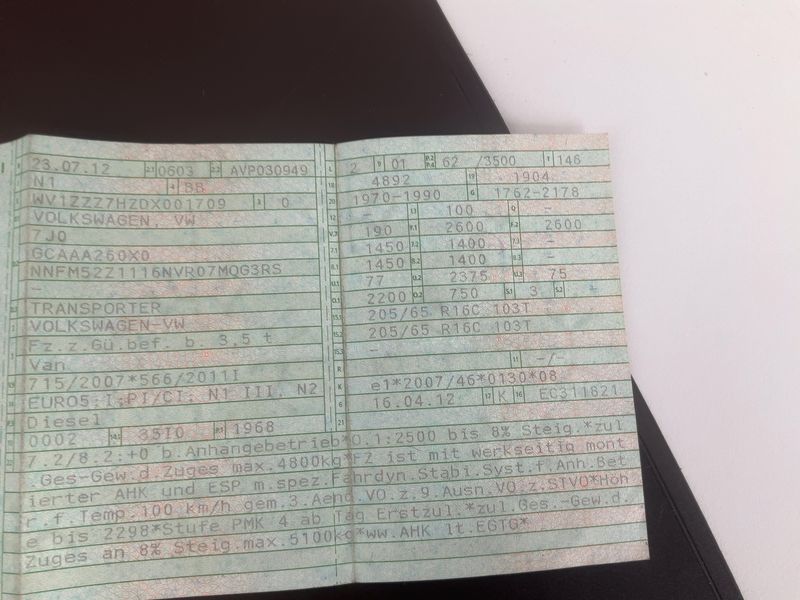 23.07.12 2.1 0603 2.2 AVP030949
N1 4 BB
WV1ZZZ7HZDX001709 3 0
VOLKSWAGEN, VW
7J0
GCAAA260X0
NNFM52Z1116NVR07MQG3RS
–
TRANSPORTER
VOLKSWAGEN-VW
Fz.z.Gü.bef. b. 3,5 t
Van
715/2007*566/2011I
EURO5;I;PI/CI; N1 III, N2
Diesel
0002 35I0 1968
L 2 9 01 P.2 P.4 62 /3500 T 146
18 4892 19 1904
20 1970-1990 G 1762-2178
12 – 13 100 Q –
V.7 190 F.1 2600 F.2 2600
7.1 1450 7.2 1400 7.3 –
8.1 1450 8.2 1400 8.3 –
U.1 77 U.2 2375 U.3 75
O.1 2200 O.2 750 S.1 3 S.2
15.1 205/65 R16C 103T
15.2 205/65 R16C 103T
15.3 –
R 11 -/-
K e1*2007/46*0130*08
6 16.04.12 17 K 16 EC311821
21
7.2/8.2:+0 b.Anhängebetrieb*O.1:2500 bis 8% Steig.*zul
.Ges-Gew.d.Zuges max.4800kg*FZ ist mit werkseitig mont
ierter AHK und ESP m.spez.Fahrdyn.Stabi.Syst.f.Anh.Bet
r.f.Temp 100 km/h gem.3.Aend.VO.z.9.Ausn.VO.z.STVO*Höh
e bis 2298*Stufe PMK 4 ab Tag Erstzul.*zul.Ges.-Gew.d.
Zuges an 8% Steig.max.5100kg*ww.AHK lt.EGTG*